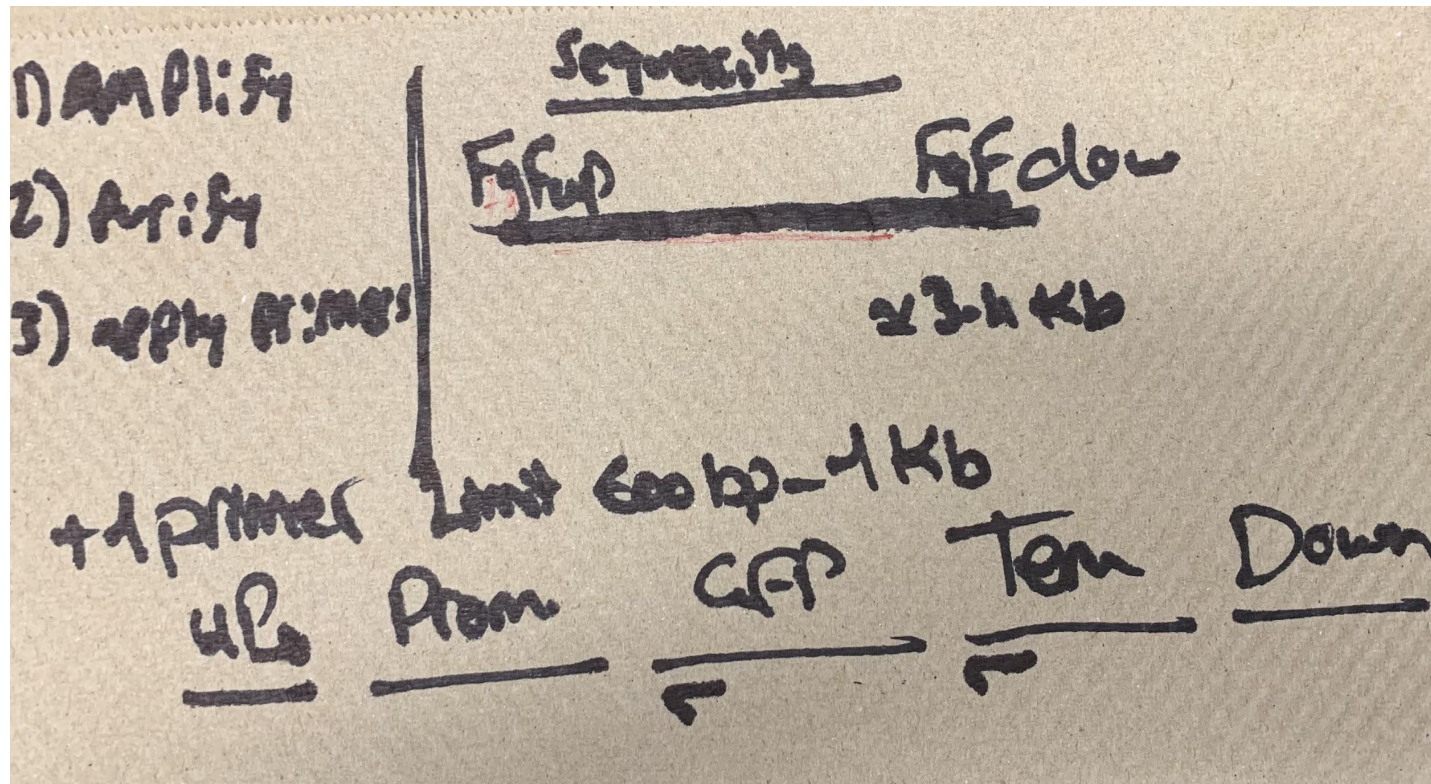 1) Amplify
2) Purify
3) apply primers
Sequencing
FgFup FgF dow
≈3-4 Kb
+1 primer Limit 600 bp - 1 Kb
UP Prom GFP Term Down